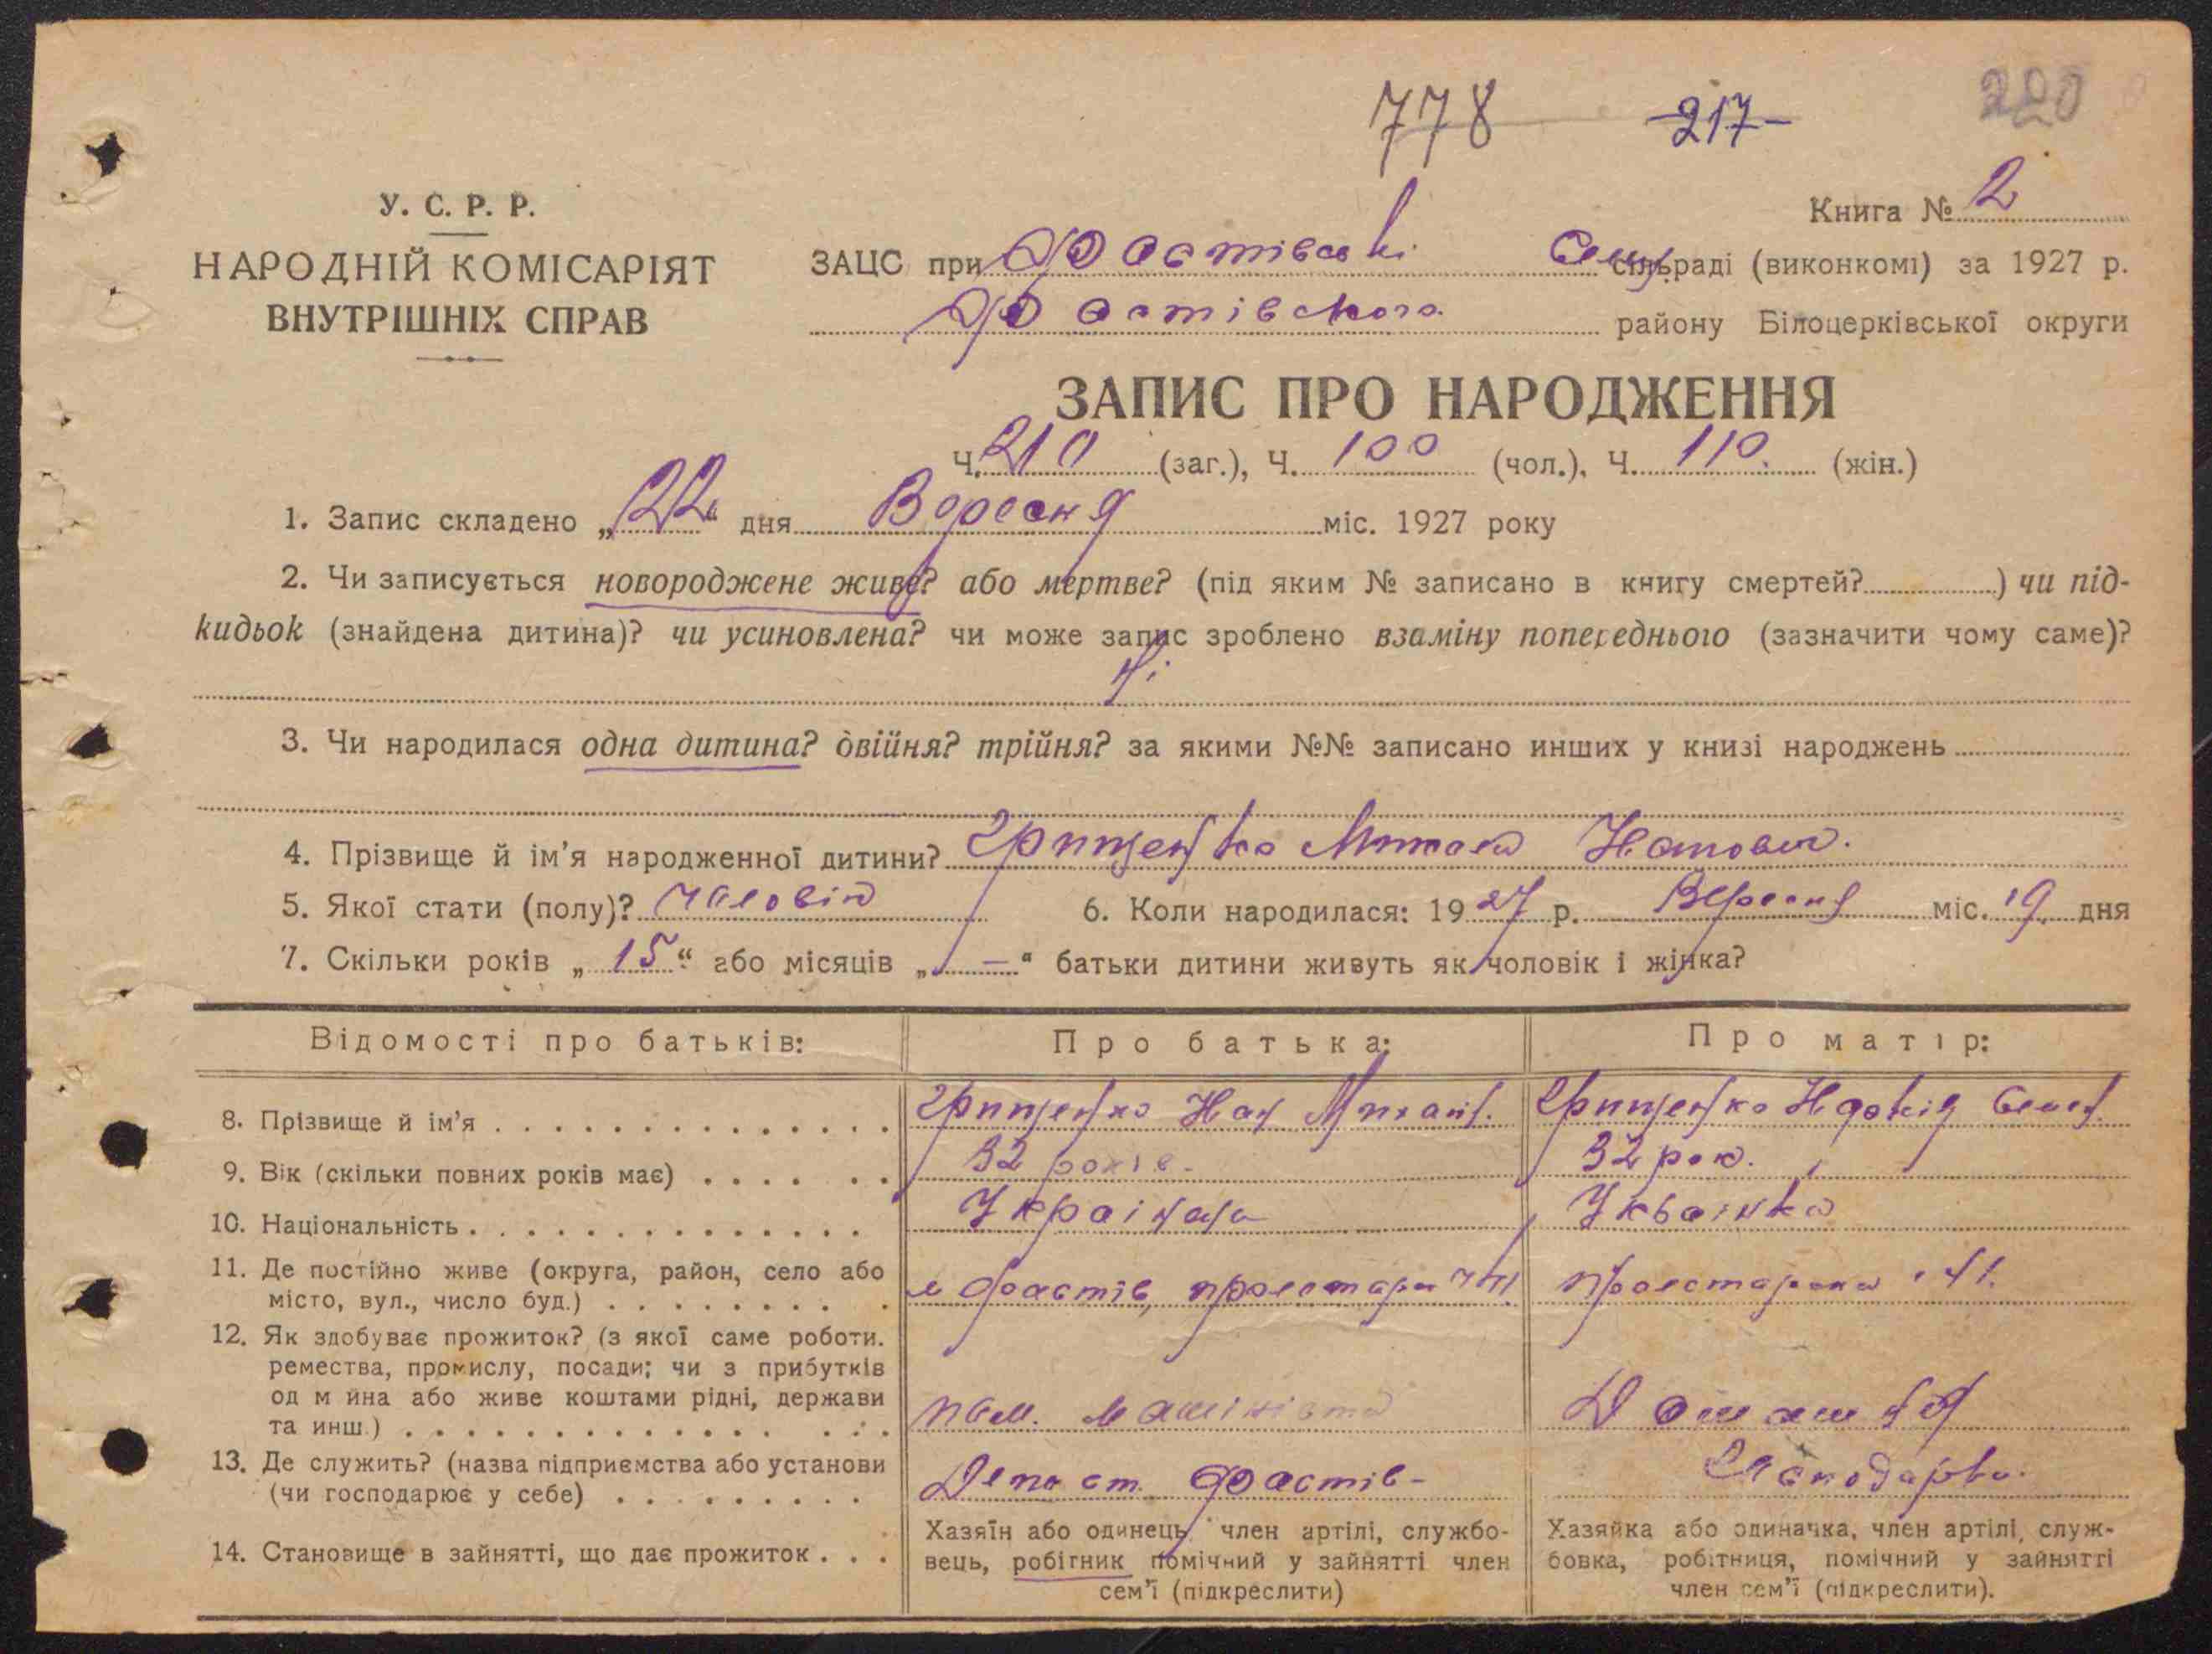 778 217 220
У. С. Р. Р.
Книга № 2
НАРОДНІЙ КОМІСАРІЯТ
ВНУТРІШНІХ СПРАВ
ЗАЦС при Фастівські сільраді (виконкомі) за 1927 р.
Фастівского району Білоцерківської округи
ЗАПИС ПРО НАРОДЖЕННЯ
Ч. 210 (заг.), Ч. 100 (чол.), Ч. 110. (жін.)
1. Запис складено „22“ дня Вересня міс. 1927 року
2. Чи записується новороджене живе? або мертве? (під яким № записано в книгу смертей? ) чи під-
кидьок (знайдена дитина)? чи усиновлена? чи може запис зроблено взаміну попереднього (зазначити чому саме)?
Ні
3. Чи народилася одна дитина? двійня? трійня? за якими №№ записано инших у книзі народжень
4. Прізвище й ім’я народженної дитини? Грищенко Микола
5. Якої стати (полу)? Чаловік 6. Коли народилася: 1927 р. Вересня міс. 19 дня
7. Скільки років „15“ або місяців „—“ батьки дитини живуть як чоловік і жінка?
Відомості про батьків: Про батька: Про матір:
8. Прізвище й ім’я Грищенко Грищенко
9. Вік (скільки повних років має) 32 років. 32 рок.
10. Національність Українець Українка
11. Де постійно живе (округа, район, село або
місто, вул., число буд.) м Фастів,
12. Як здобуває прожиток? (з якої саме роботи.
ремества, промислу, посади; чи з прибутків
од м йна або живе коштами рідні, держави
та инш.) пом. машініста Домашня
13. Де служить? (назва підприємства або установи
(чи господарює у себе) Депо ст. Фастів-
14. Становище в зайнятті, що дає прожиток
Хазяїн або одинець, член артілі, службо-
вець, робітник помічний у зайнятті член
сем’ї (підкреслити)
Хазяйка або одиначка, член артілі, служ-
бовка, робітниця, помічний у зайнятті
член сем’ї (підкреслити).